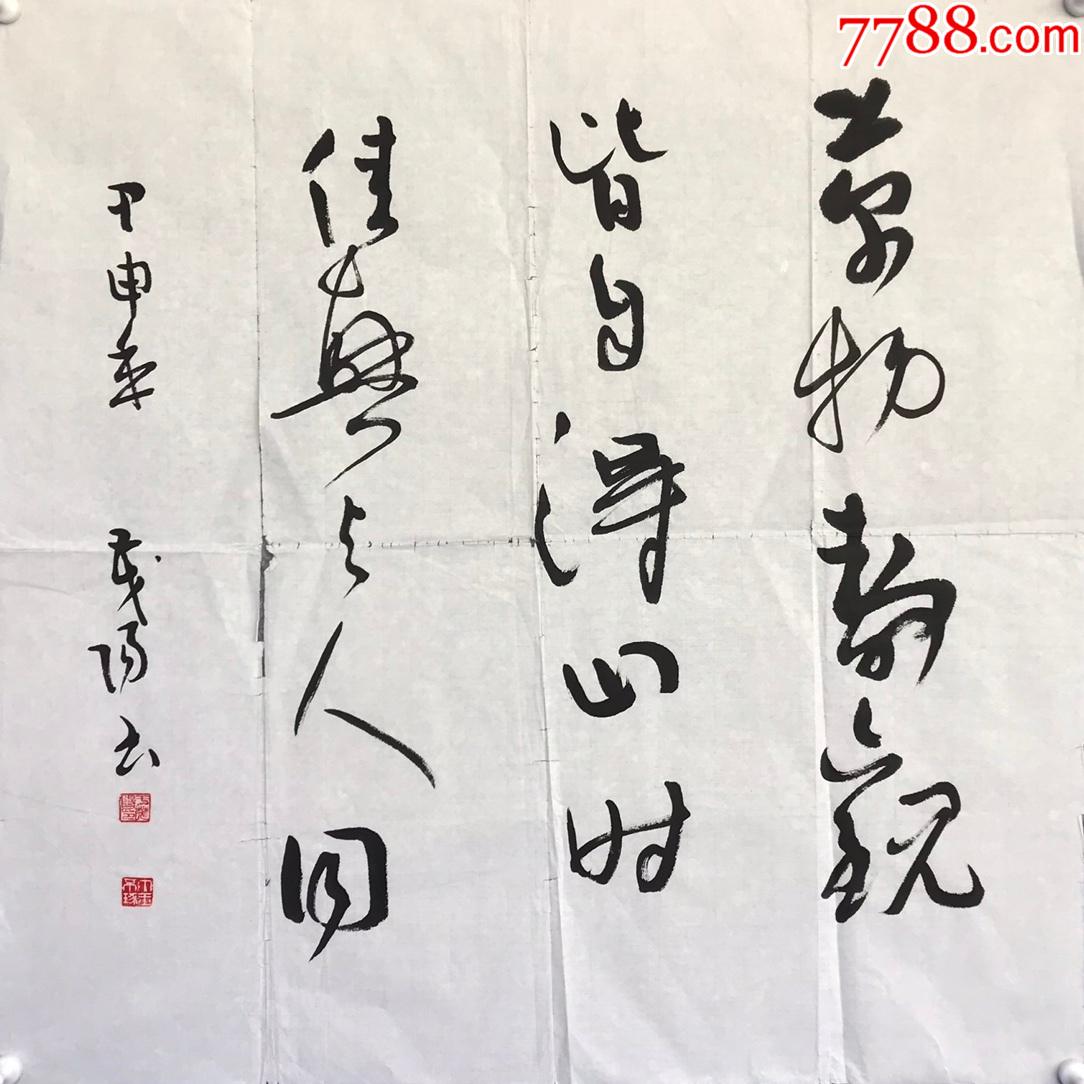 7788.com
萬物静觀
皆自得四时
佳興与人同
甲申年 书